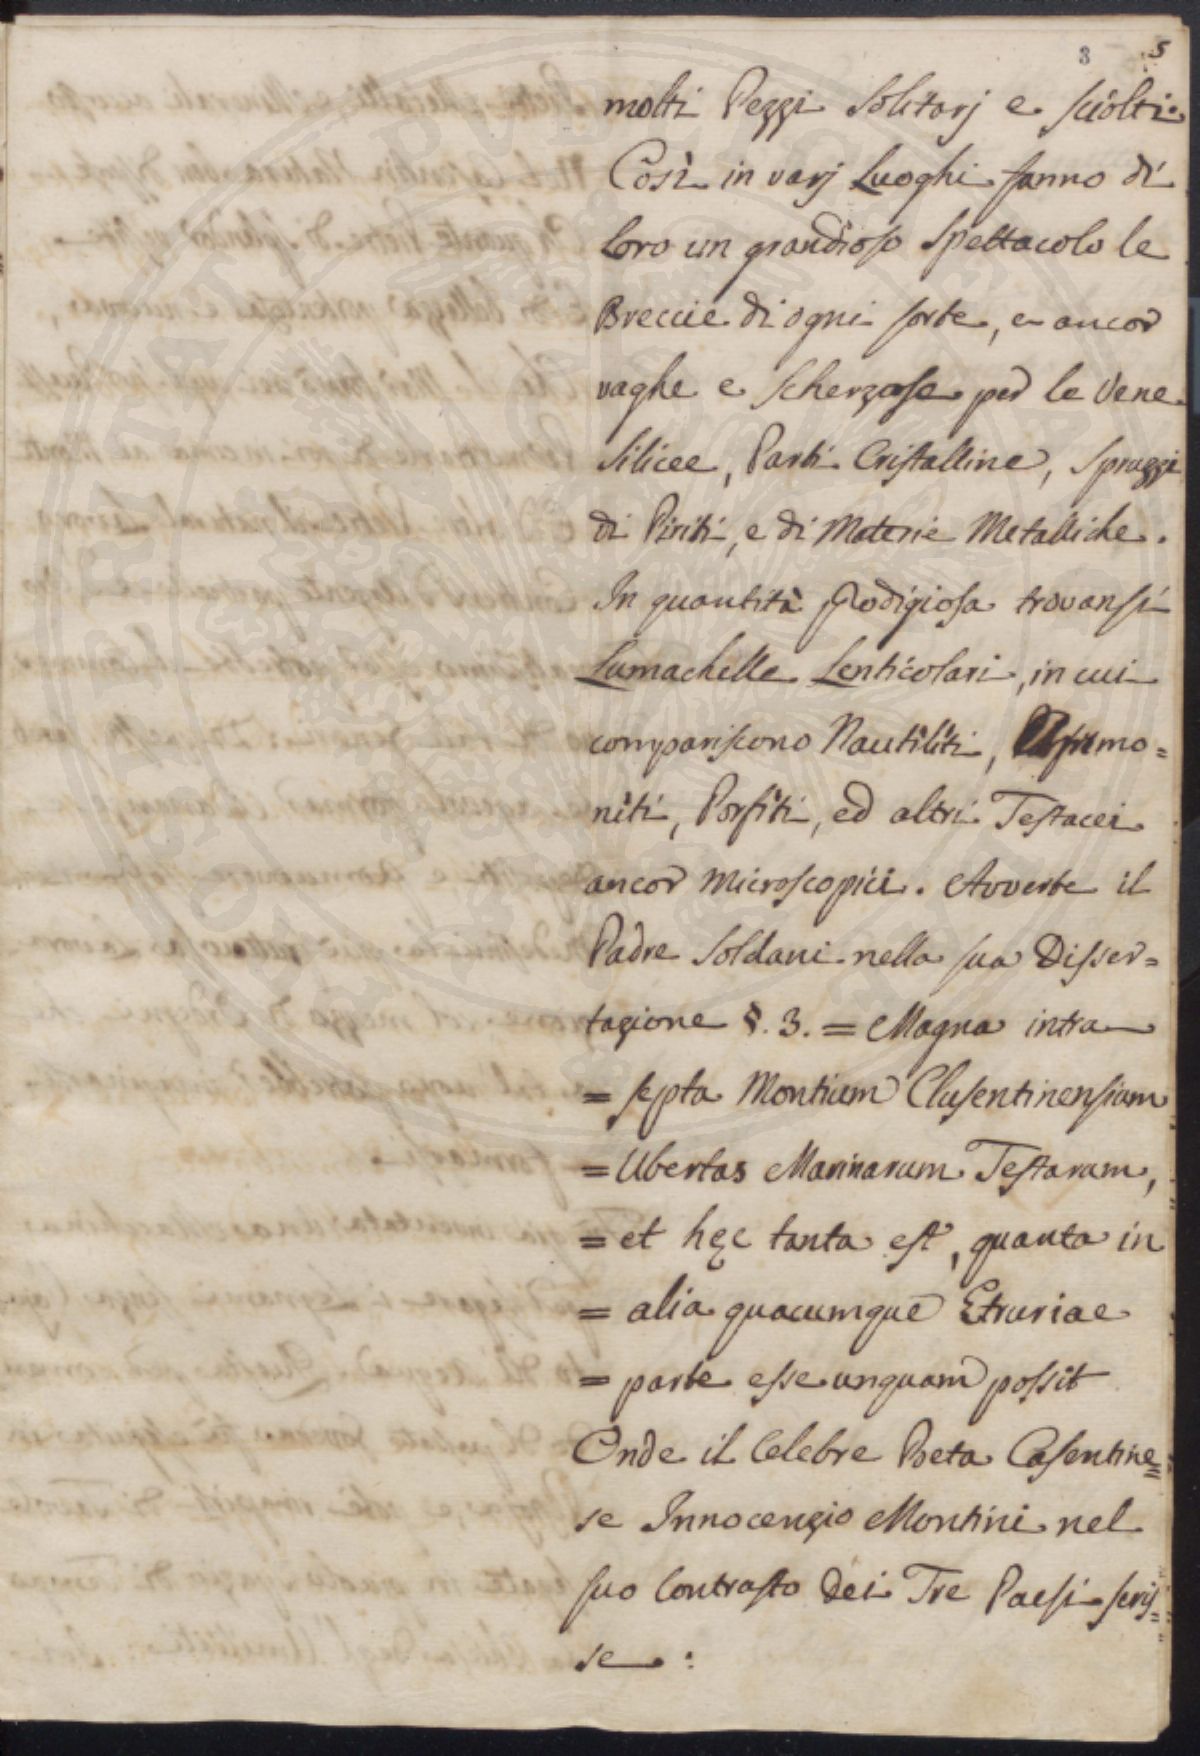 3 5
molti Pezzi Solitarj e sciolti.
Così in varj Luoghi fanno di
loro un grandioso Spettacolo le
Breccie di ogni sorte, e ancor
vaghe e Scherzose per le Vene
Silicee, Parti Cristalline, Spruzzi
di Piriti, e di Materie Metalliche.
In quantità prodigiosa trovansi
Lumachelle Lenticolari, in cui
compariscono Nautiliti, mo=
niti, Porfiti, ed altri Testacei
ancor Microscopici. Avverte il
Padre Soldani nella sua Disser=
tazione §. 3. = Magna intra
= septa Montium Clusentinensium
= Ubertas Marinarum Testarum,
= et hęc tanta est, quanta in
= alia quacumque Etruriae
= parte esse unquam possit
Onde il Celebre Poeta Casentine=
se Innocenzio Montini nel
suo Contrasto dei Tre Paesi scris=
se :